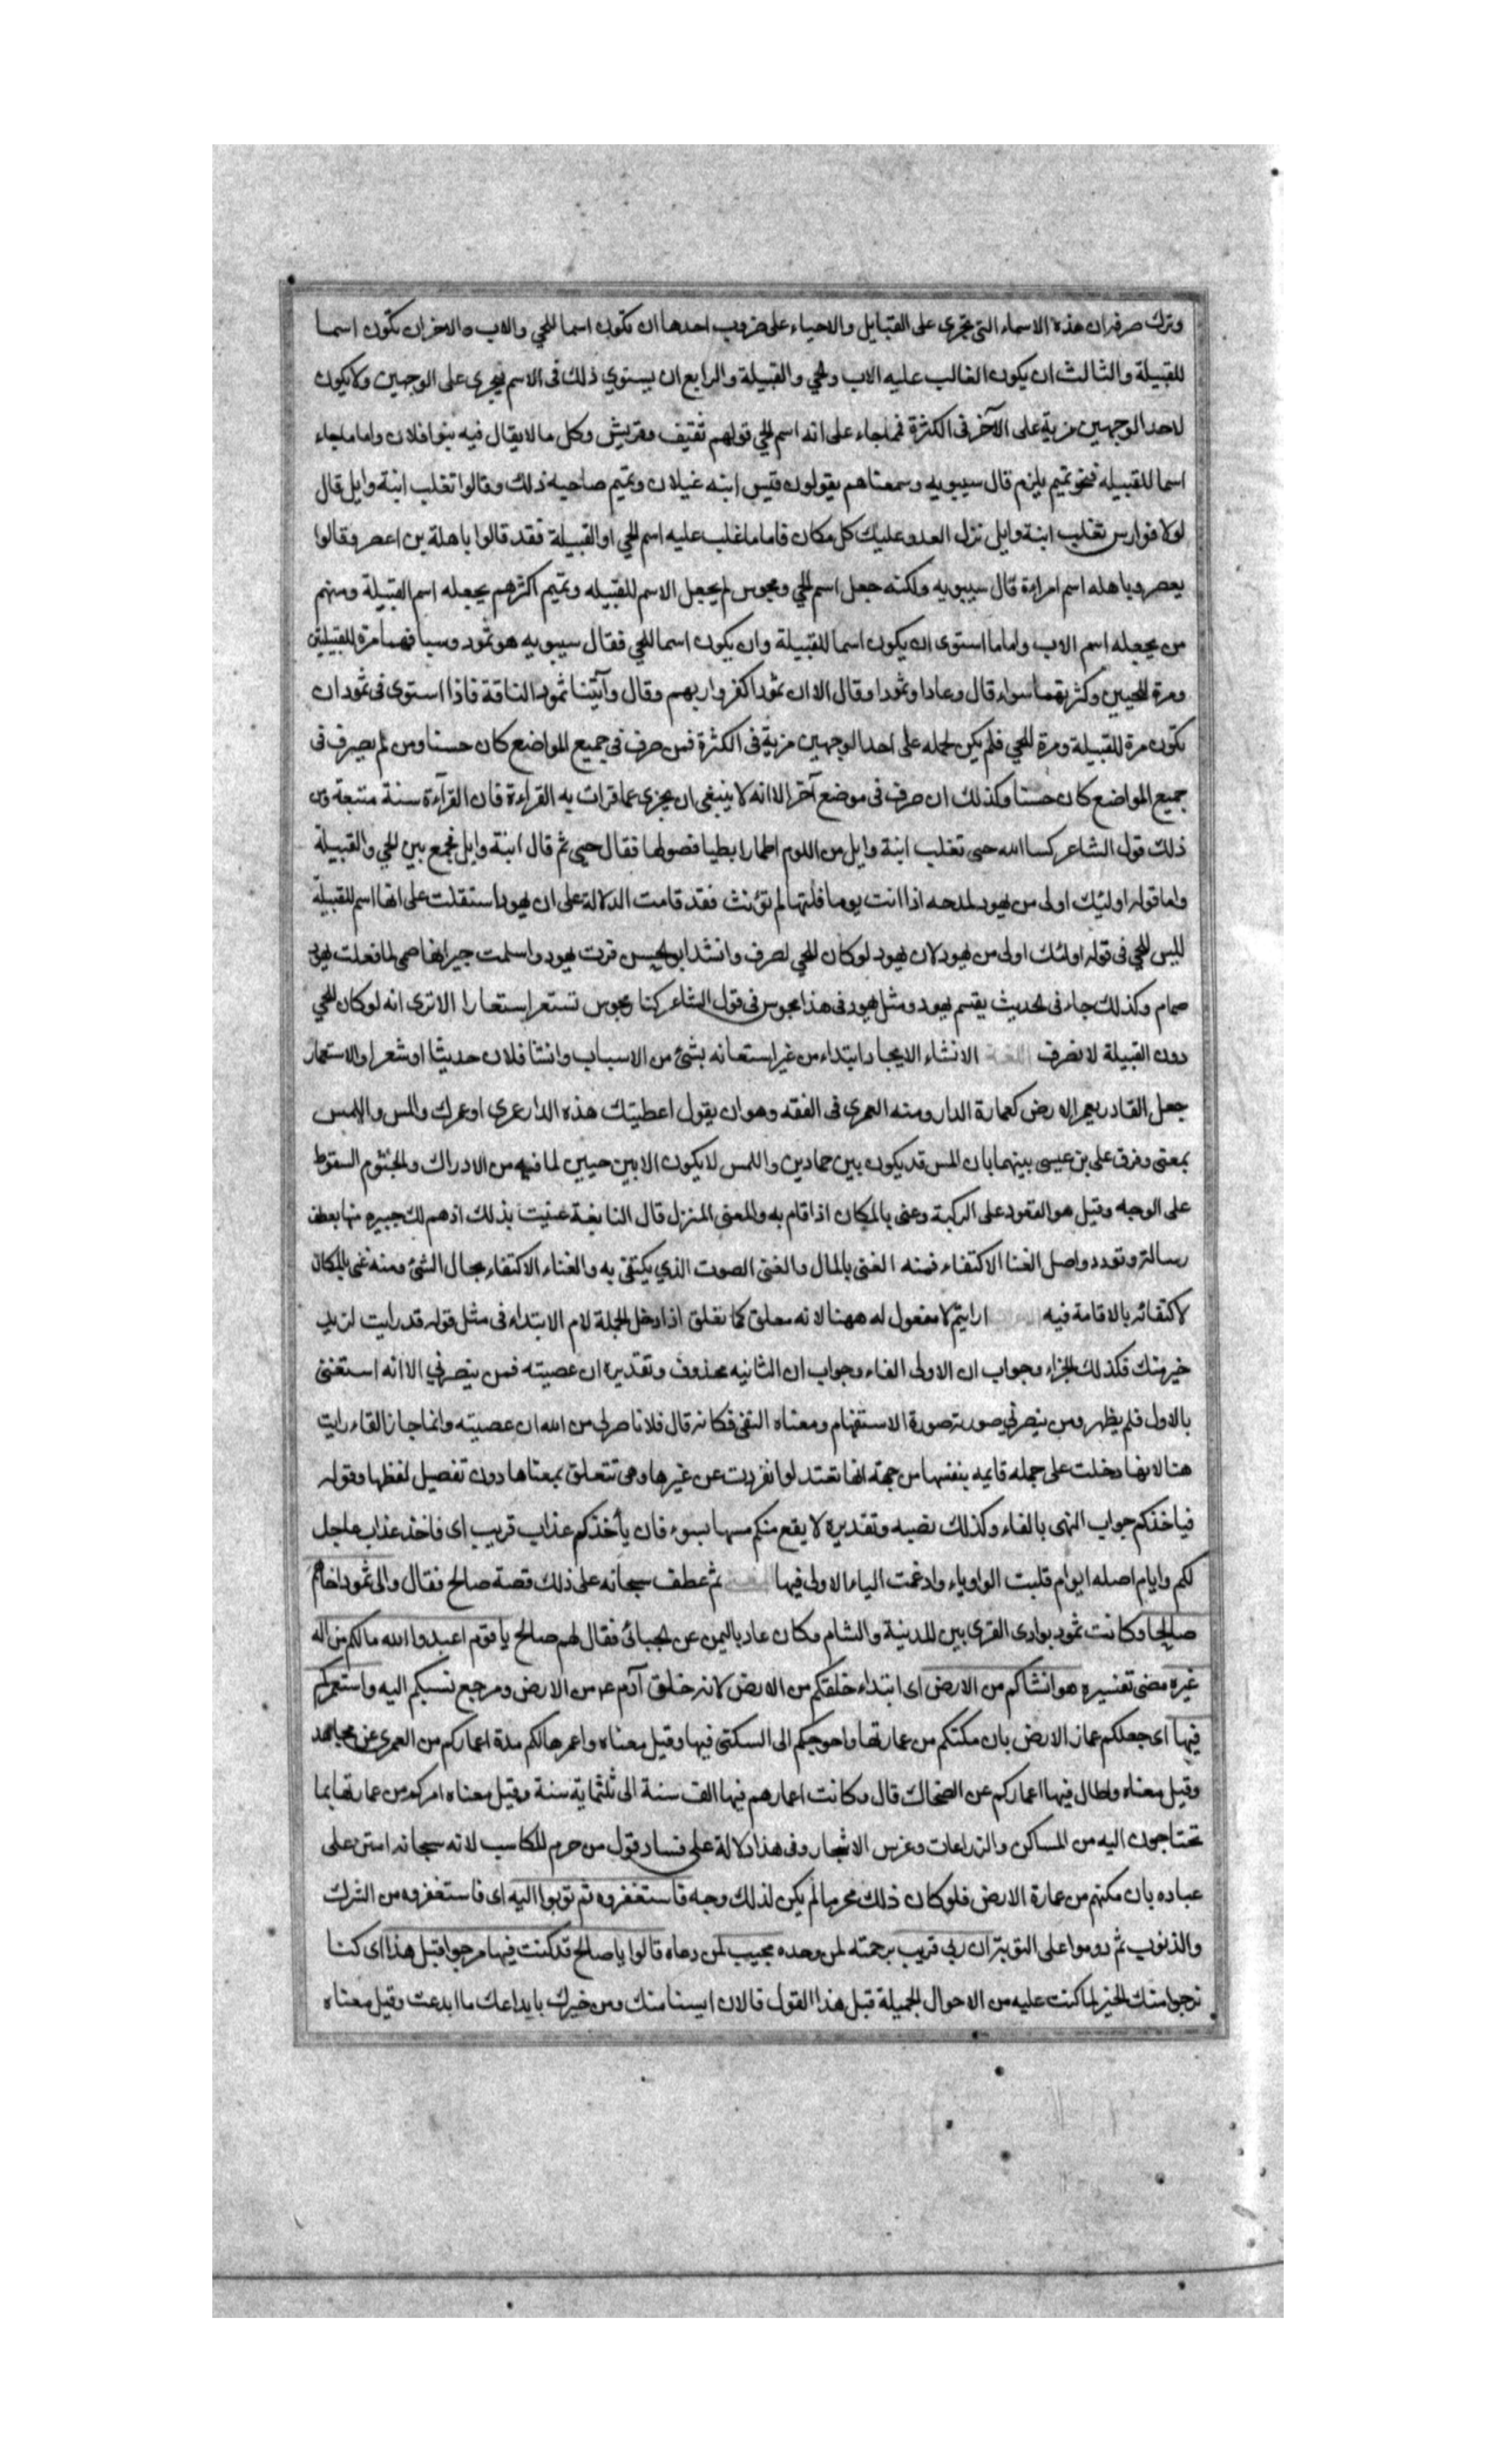 وترك صرفه ان هذه الاسماء التي تجري على القبايل والاحياء على ضروب احدها ان تكون اسما للحي والاب والاخر ان تكون اسما
للقبيلة والثالث ان يكون الغالب عليه الاب والحي والقبيلة والرابع ان يستوي ذلك في الاسم فيجري على الوجهين ولا يكون
لاحد الوجهين مزية على الآخر في الكثرة فما جاء على انه اسم للحي قولهم ثقيف وقريش وكل ما لا يقال فيه بنوا فلان واما ما جاء
اسما للقبيلة فنحو تميم قال سيبويه وسمعناهم يقولون قيس ابنه غيلان وتميم صاحبه ذلك وقالوا تغلب ابنة وايل قال
لولا فوارس تغلب ابنة وايل نزل العدو عليك كل مكان فاما ما غلب عليه اسم الحي او القبيلة فقد قالوا باهلة بن اعصر وقالوا
يعصر وباهله اسم امراءة قال سيبويه ولكنه جعل اسم الحي ومجوس لم يجعل الاسم للقبيله وتميم اكثرهم يجعله اسم القبيلة ومنهم
من يجعله اسم الاب واما ما استوى ان يكون اسما للقبيلة وان يكون اسما للحي فقال سيبويه هو ثمود وسبا فهما مرة للقبيلتين
ومرة للحيين وكثرتهما سواء قال وعادا وثمودا وقال الا ان ثمودا كفروا ربهم وقال وآتينا ثمود الناقة فاذا استوى في ثمود ان
تكون مرة للقبيلة ومرة للحي فلم يكن لحمله على احد الوجهين مزية في الكثرة فمن صرف في جميع المواضع كان حسنا ومن لم يصرف في
جميع المواضع كان حسنا وكذلك ان صرف في موضع آخر الا انه لا ينبغي ان يجزي عما قرات به القراءة فان القرآءة سنة متبعة ومن
ذلك قول الشاعر كسا الله حيي تغلب ابنة وايل من اللوم اظفارا بطيا نصولها فقال حيي ثم قال ابنة وايل فجمع بين الحي والقبيلة
واما قوله اوليك اولى من يهود لمدحه اذا انت يوما قلتها لم تؤنث فقد قامت الدلالة على ان يهود استقلت على انها اسم للقبيلة
ليس للحي في قوله اولئك اولى من يهود لان يهود لو كان للحي لصرف وانشد ابو الحسن فرت يهود واسلمت جيرانها صمي لما فعلت يهود
صمام وكذلك جاء في الحديث يقسم يهود ومثل يهود في هذا مجوس في قول الشاعر كنار مجوس تستعر استعارا الا ترى انه لو كان للحي
دون القبيلة لانصرف اللغة الانشاء الايجاد ابتداء من غير استعانه بشئ من الاسباب وانشا فلان حديثا او شعرا والاستعمار
جعل القادر يعمر الارض كعمارة الدار ومنه العمرى في الفقه وهو ان يقول اعطيتك هذه الدار عمري او عمرك والمس واللمس
بمعنى وفرق علي بن عيسى بينهما بان المس قد يكون بين جمادين واللمس لا يكون الا بين حيين لما فيه من الادراك والجثوم السقوط
على الوجه وقيل هو القعود على الركبة وغنى بالمكان اذا قام به والمغنى المنزل قال النابغة غنيت بذلك اذ هم لك جيره منها بعطف
رسالة وتودد واصل الغنا الاكتفاء فمنه الغنى بالمال والغنى الصوت الذي يكتفي به والغناء الاكتفاء بحال الشئ ومنه غنى بالمكان
لاكتفائه بالاقامة فيه ارايتم لا مفعول له ههنا لانه معلق كما تعلق اذا دخل الجملة لام الابتداء في مثل قوله قد رايت لزيد
خير منك فكذلك الجزاء وجواب ان الاولى الفاء وجواب ان الثانيه محذوف وتقديره ان عصيته فمن ينصرني الا انه استغنى
بالاول فلم يظهر ومن ينصرني صورته صورة الاستفهام ومعناه النفي فكانه قال فلا ناصر لي من الله ان عصيته وانما جاز القاء رايت
هنا لانها دخلت على جمله قايمه بنفسها من جهة انها تعتد لو انفردت عن غيرها وهي تتعلق بمعناها دون تفصيل لفظها وقوله
فياخذكم جواب النهى بالفاء وكذلك نصبه وتقديره لا يقع منكم مسها بسوء فان يأخذكم عذاب قريب اى فاخذ عذاب عاجل
لكم وايام اصله ايوام قلبت الواو ياء وادغمت الياء الاولى فيها ثم عطف سبحانه على ذلك قصة صالح فقال والى ثمود اخاهم
صالحا وكانت ثمود بوادى القرى بين المدينة والشام وكان عاد باليمن عن الجبائي فقال لهم صالح يا قوم اعبدوا الله ما لكم من اله
غيره مضى تفسيره هو انشاكم من الارض اى ابتداء خلقكم من الارض لانه خلق آدم عم من الارض ومرجع نسبكم اليه واستعمركم
فيها اى جعلكم عمار الارض بان مكنكم من عمارتها واحوجكم الى السكنى فيها وقيل معناه واعمرها لكم مدة اعماركم من العمرى عن مجاهد
وقيل معناه واطال فيها اعماركم عن الضحاك قال وكانت اعمارهم فيها الف سنة الى ثلثماية سنة وقيل معناه امركم من عمارتها بما
تحتاجون اليه من المساكن والزراعات وغرس الاشجار وفي هذا دلالة على فساد قول من حرم المكاسب لانه سبحانه امتن على
عباده بان مكنهم من عمارة الارض فلو كان ذلك محرما لم يكن لذلك وجه فاستغفروه ثم توبوا اليه اى فاستغفروه من الشرك
والذنوب ثم دوموا على التوبة ان ربي قريب برحمته لمن وحده مجيب لمن دعاه قالوا يا صالح قد كنت فينا مرجوا قبل هذا اى كنا
نرجوا منك الخير لما كنت عليه من الاحوال الجميلة قبل هذا القول فالان ايسنا منك ومن خيرك بابداعك ما ابدعت وقيل معناه